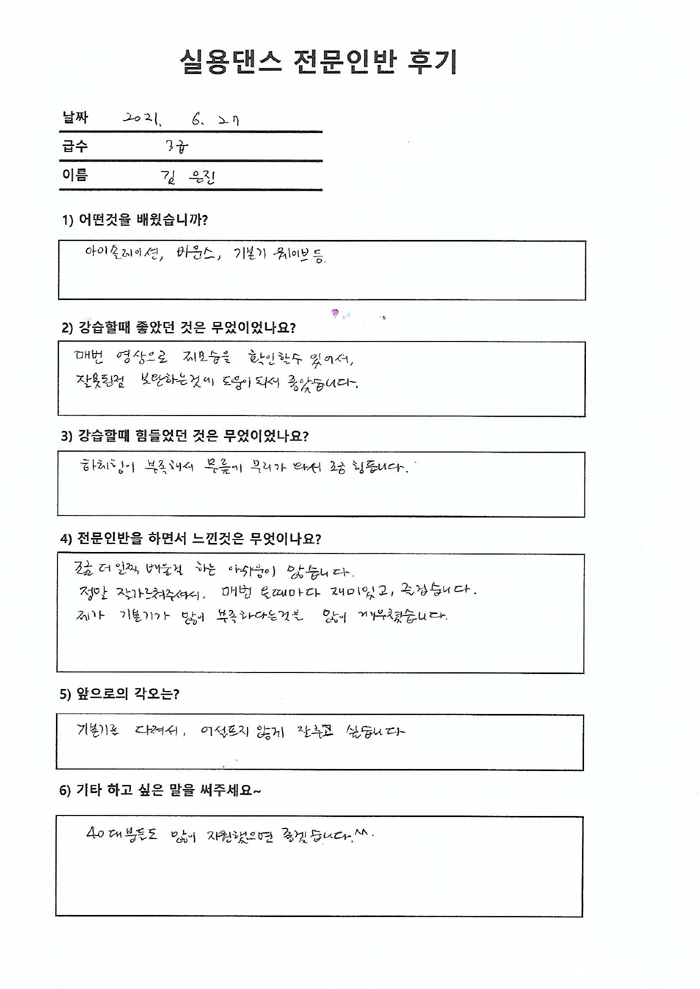 실용댄스 전문인반 후기
날짜 2021. 6. 27
급수 3급
이름 김 은진
1) 어떤것을 배웠습니까?
아이솔레이션, 바운스, 기본기 웨이브 등.
2) 강습할때 좋았던 것은 무었이었나요?
매번 영상으로 제모습을 확인할수 있어서,
잘못된점 보완하는것에 도움이 되서 좋았습니다.
3) 강습할때 힘들었던 것은 무었이었나요?
하체힘이 부족해서 무릎에 무리가 와서 조금 힘듭니다.
4) 전문인반을 하면서 느낀것은 무엇이나요?
조금 더 일찍 배울걸 하는 아쉬움이 많습니다.
정말 잘가르쳐주셔서, 매번 올때마다 재미있고, 즐겁습니다.
제가 기본기가 많이 부족하다는것을 많이 깨우쳤습니다.
5) 앞으로의 각오는?
기본기를 다려서, 어설프지 않게 잘추고 싶습니다
6) 기타 하고 싶은 말을 써주세요~
40대분들도 많이 지원했으면 좋겠습니다.^^.